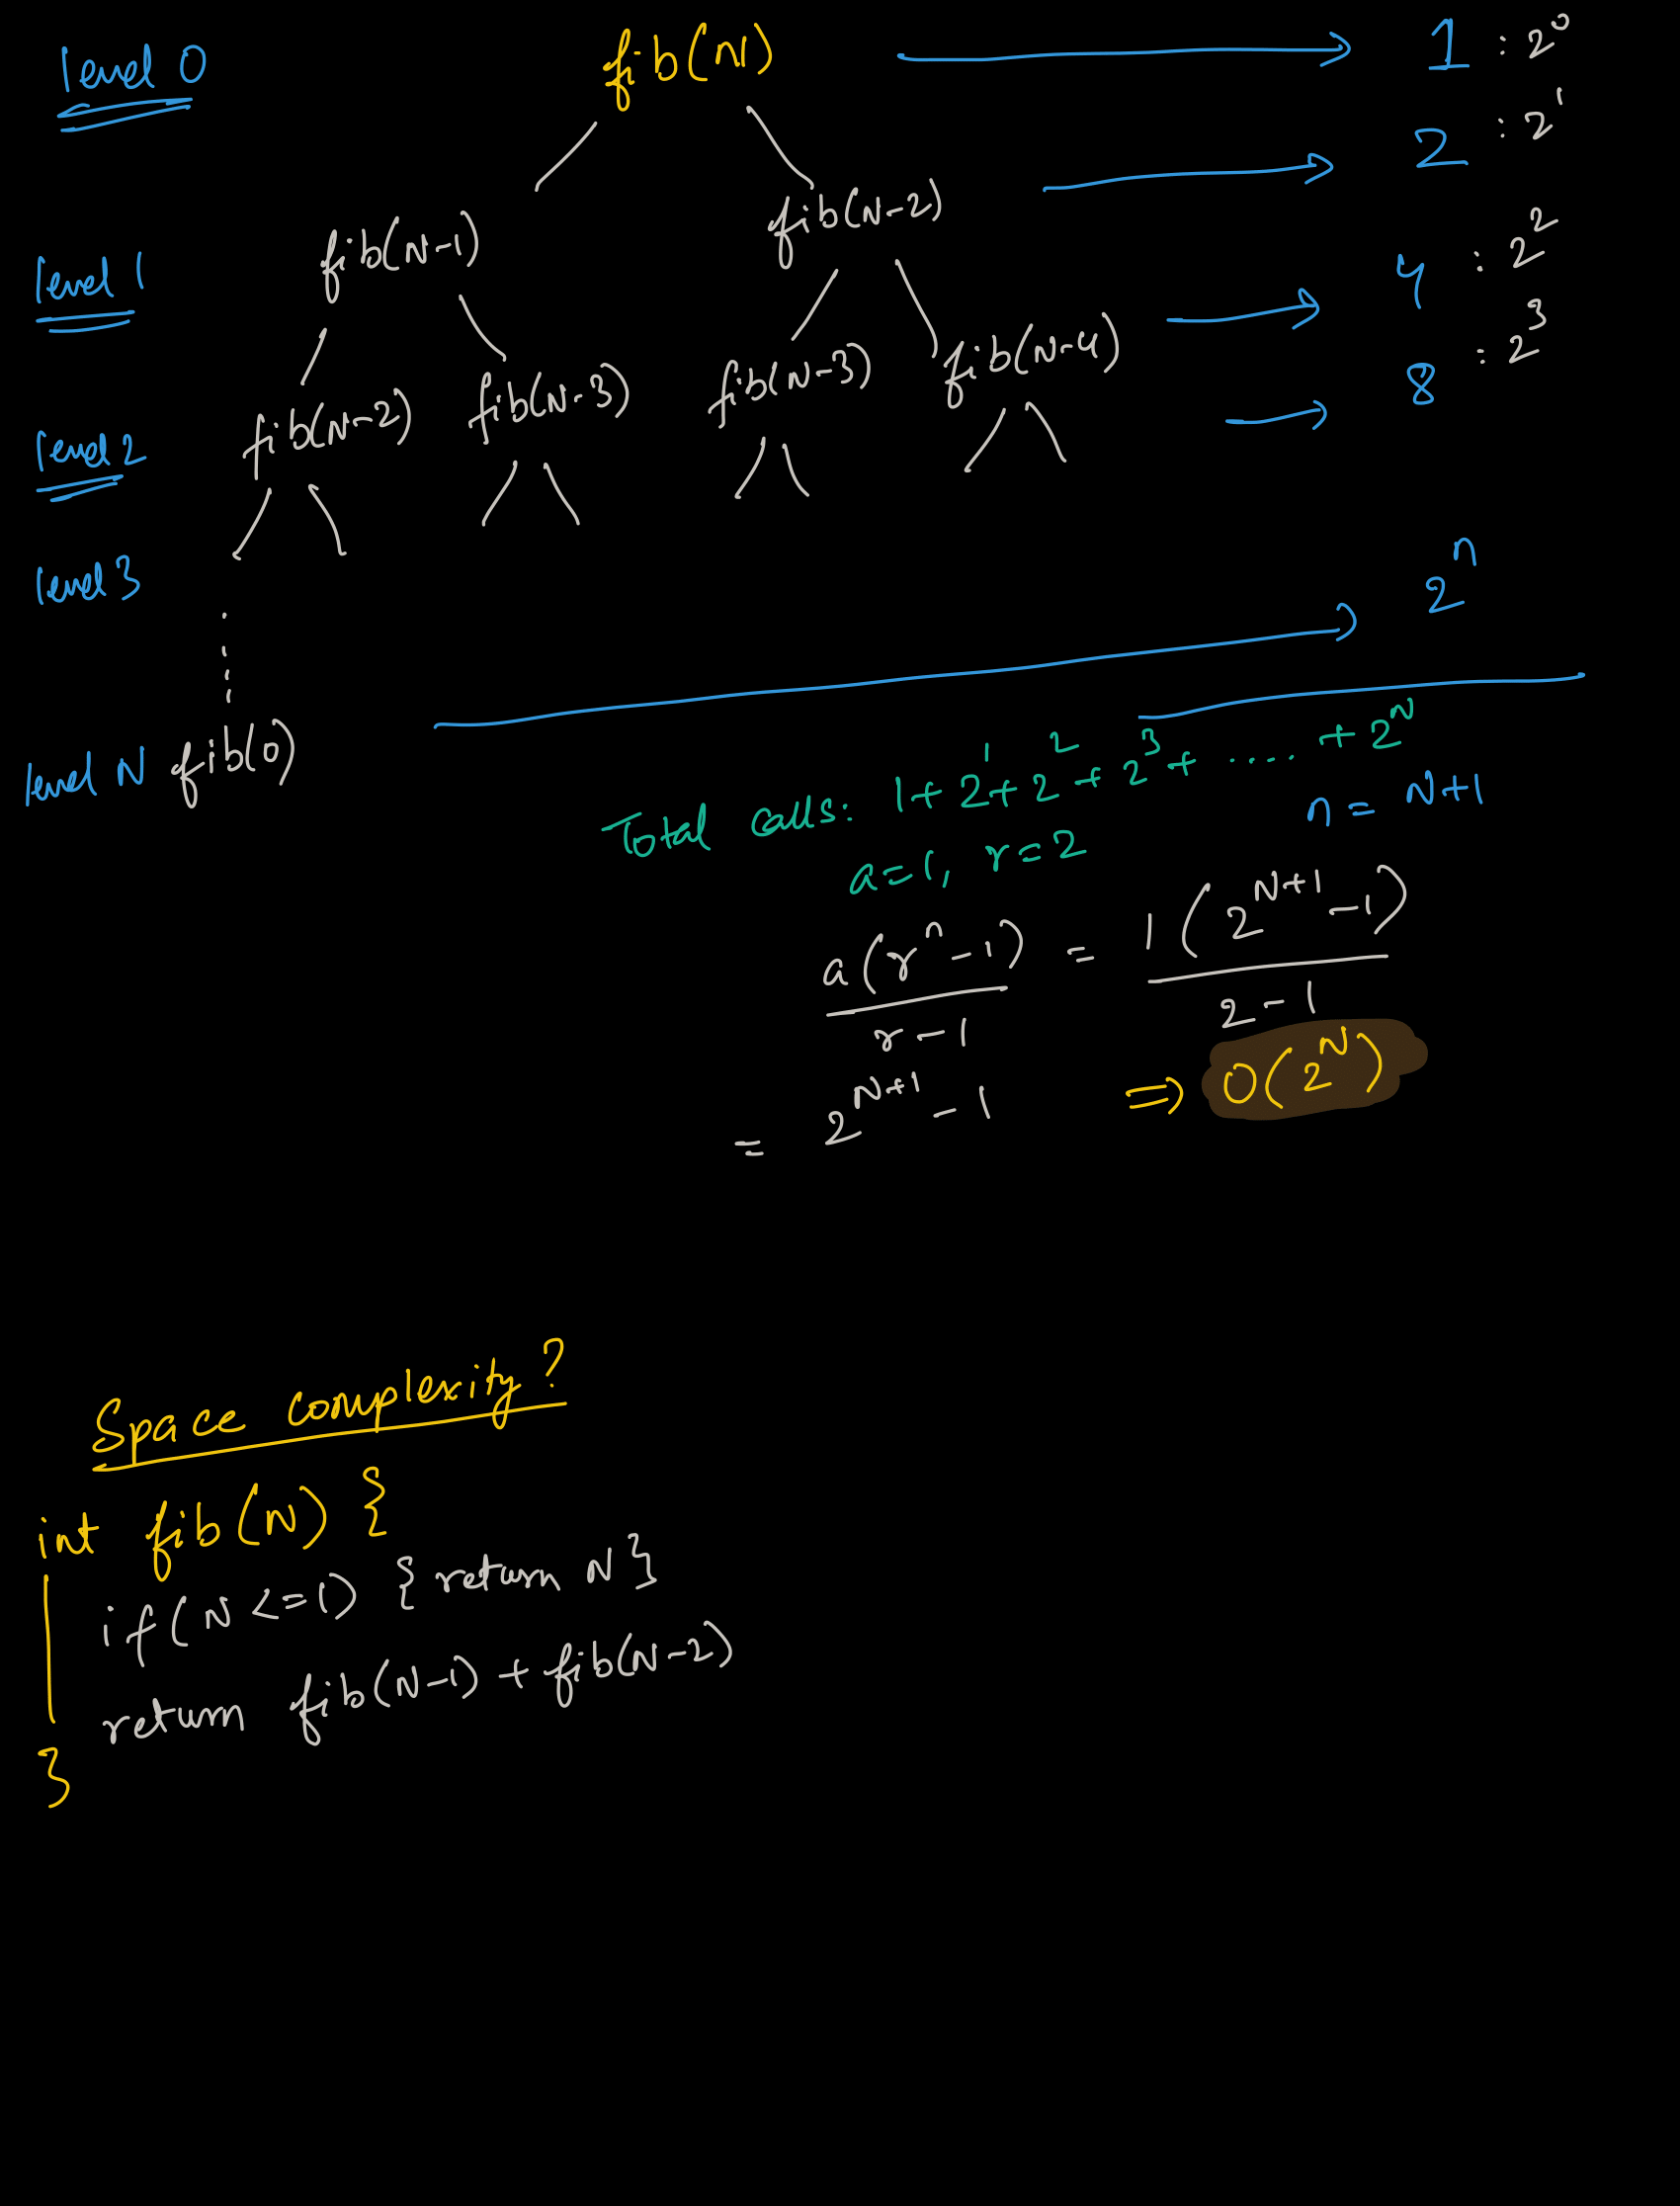 level 0 fib(N) 1 : 2^0
2 : 2^1
level 1 fib(N-1) fib(N-2) 4 : 2^2
level 2 fib(N-2) fib(N-3) fib(N-3) fib(N-4) 8 : 2^3
level 3 2^n
level N fib(0)
Total calls: 1 + 2^1 + 2^2 + 2^3 + .... + 2^N
a=1, r=2 n = N+1
a(r^n - 1) / r - 1 = 1(2^{N+1} - 1) / 2 - 1
= 2^{N+1} - 1 ⇒ O(2^N)
Space complexity?
int fib(N) {
if(N <=1) { return N }
return fib(N-1) + fib(N-2)
}